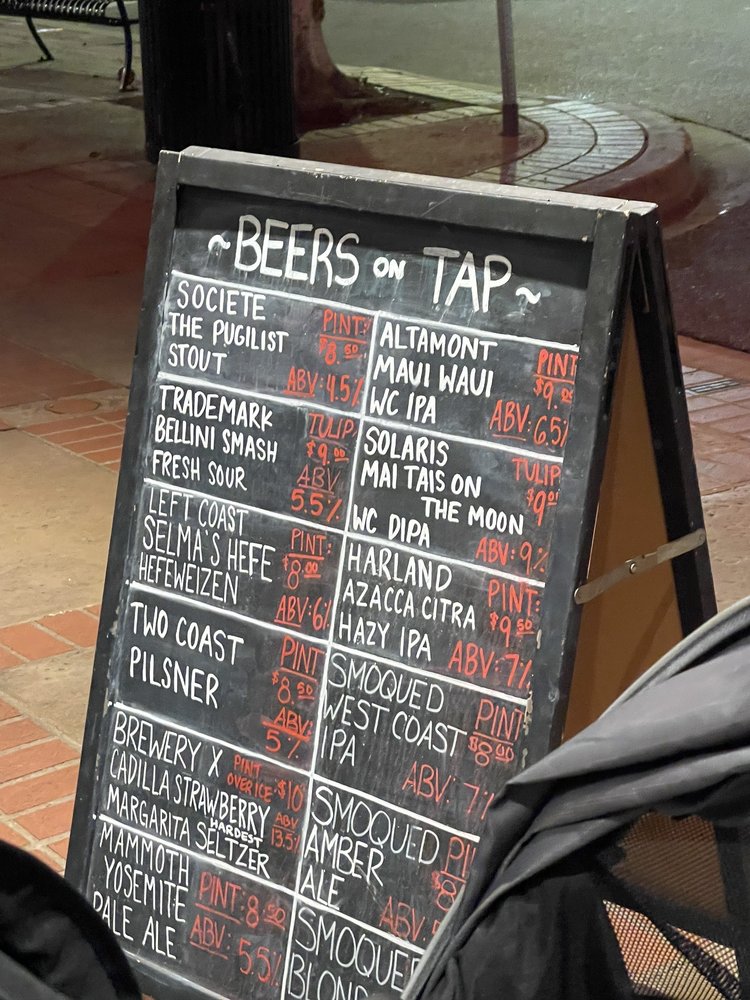 ~BEERS ON TAP~
SOCIETE
THE PUGILIST
STOUT
PINT:
$8.50
ABV: 4.5%
TRADEMARK
BELLINI SMASH
FRESH SOUR
TULIP:
$9.00
ABV
5.5%
LEFT COAST
SELMA'S HEFE
HEFEWEIZEN
PINT:
$8.00
ABV: 6%
TWO COAST
PILSNER
PINT
$8.50
ABV:
5%
BREWERY X
CADILLA STRAWBERRY
HARDEST
MARGARITA SELTZER
PINT
OVER ICE $10
ABV
13.5%
MAMMOTH
YOSEMITE
PALE ALE
PINT: 8.50
ABV: 5.5%
ALTAMONT
MAUI WAUI
WC IPA
PINT
$9.00
ABV: 6.5%
SOLARIS
MAI TAIS ON
THE MOON
WC DIPA
TULIP
$9.00
ABV: 9%
HARLAND
AZACCA CITRA
HAZY IPA
PINT:
$9.50
ABV: 7%
SMOQUED
WEST COAST
IPA
PINT
$8.00
ABV: 7%
SMOQUED
AMBER
ALE
PI
$8
ABV:
SMOQUED
BLON